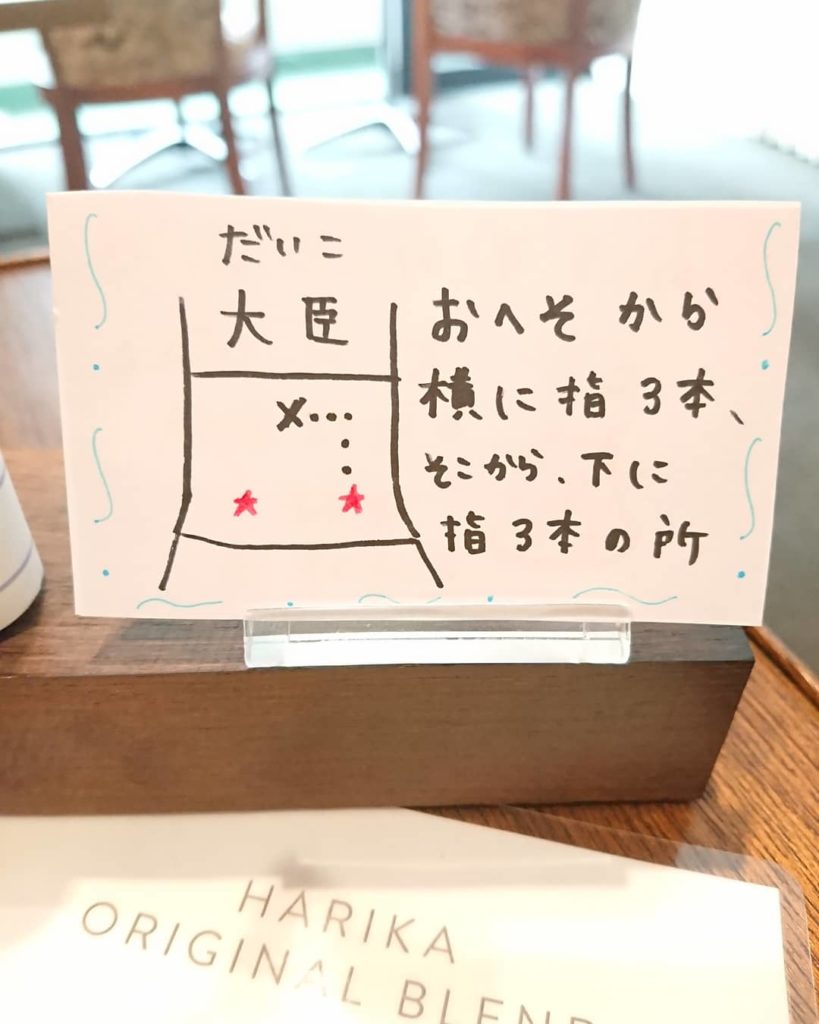 だいこ
大臣
おへそから
横に指3本、
そこから、下に
指3本の所
HARIKA
ORIGINAL BLEND